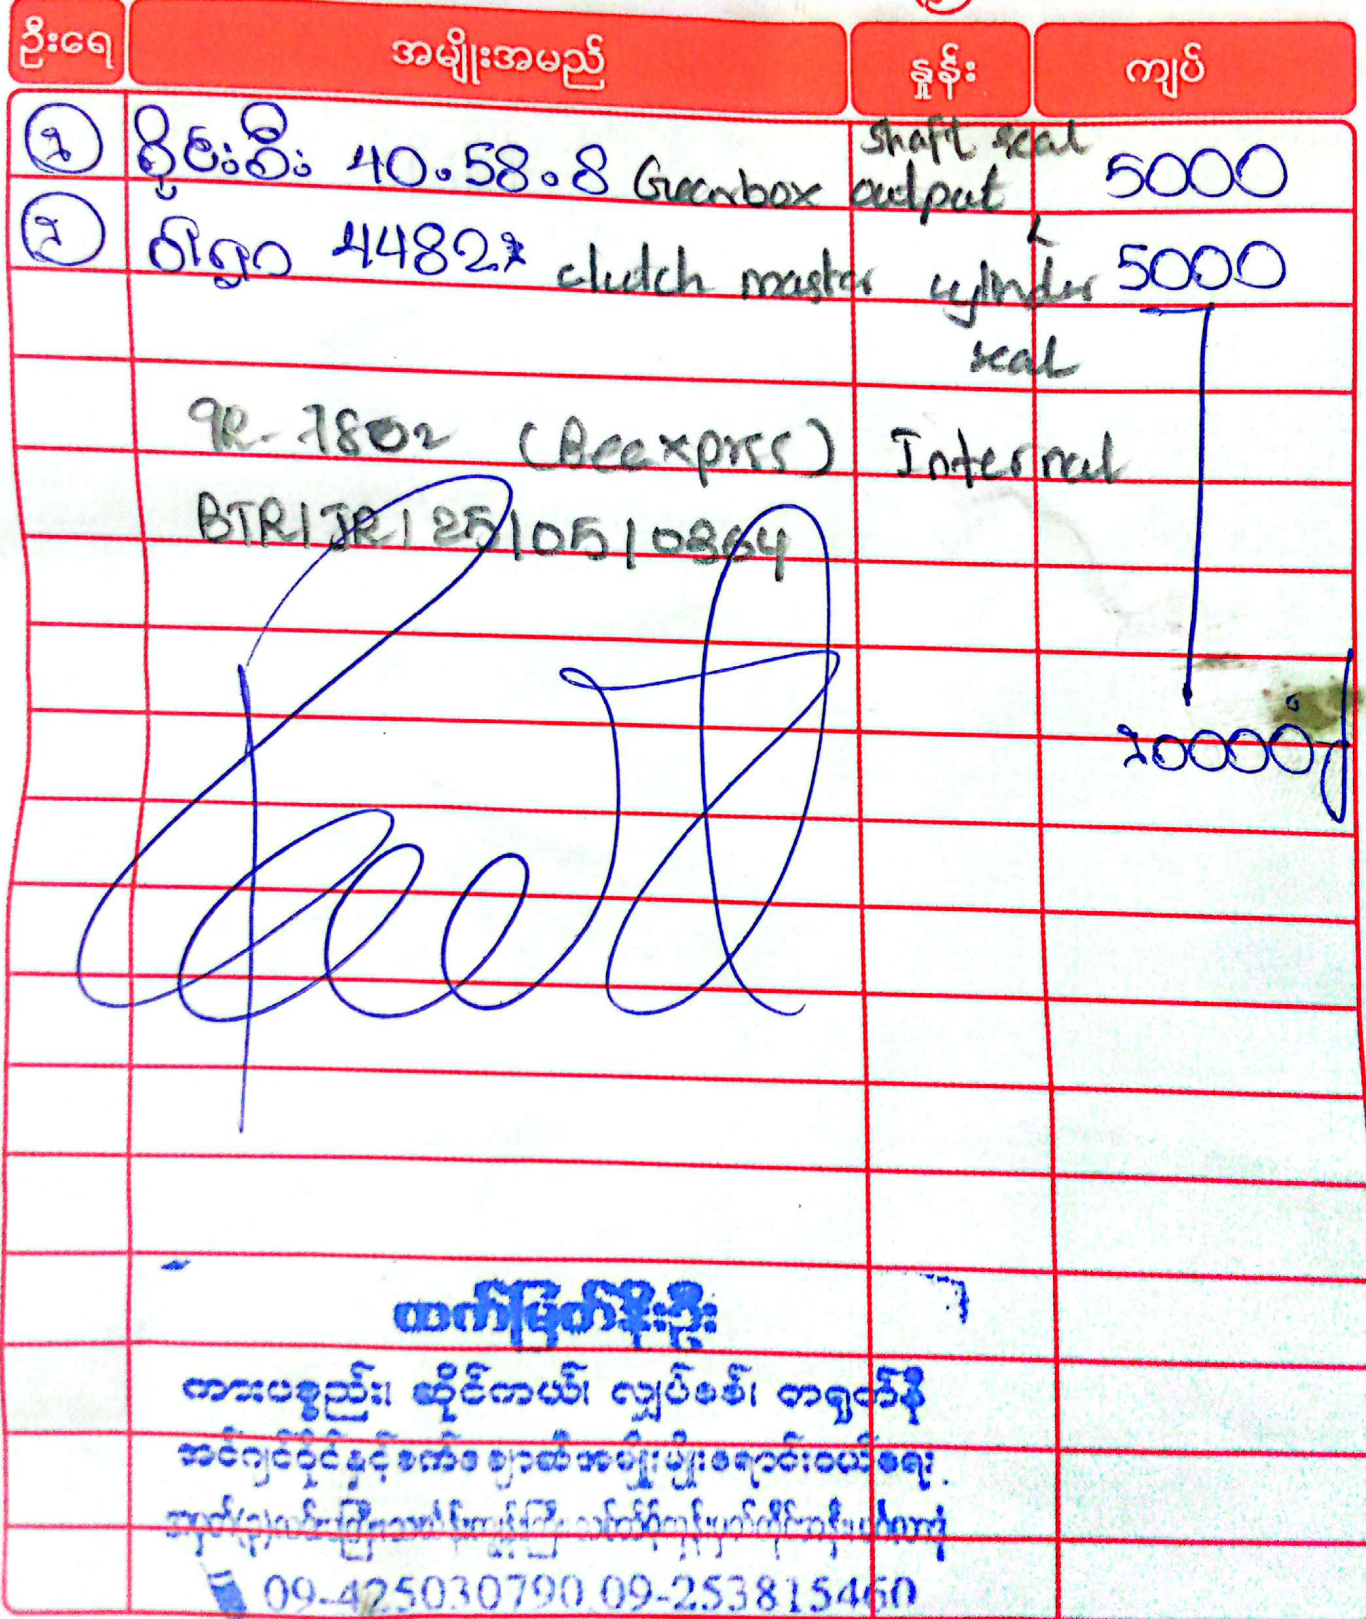 ဦးရေ အမျိုးအမည် နှုန်း ကျပ်
၁ ဝိုင်းစီး 40.58.8 Gearbox output shaft seal 5000
၂ 4482 clutch master cylinder seal 5000
9R-7802 (Beexprss) Internal
BTR/JR/25/05/0864
၁၀၀၀၀ိ/
ထက်မြတ်စိုးဦး
ကားပစ္စည်း၊ ဆိုင်ကယ်၊ လျှပ်စစ်၊ တရုတ်နီ
အင်ဂျင်ဝိုင်နှင့်စက်ချောဆီအမျိုးမျိုးရောင်းဝယ်ရေး
09-425030790 09-253815460